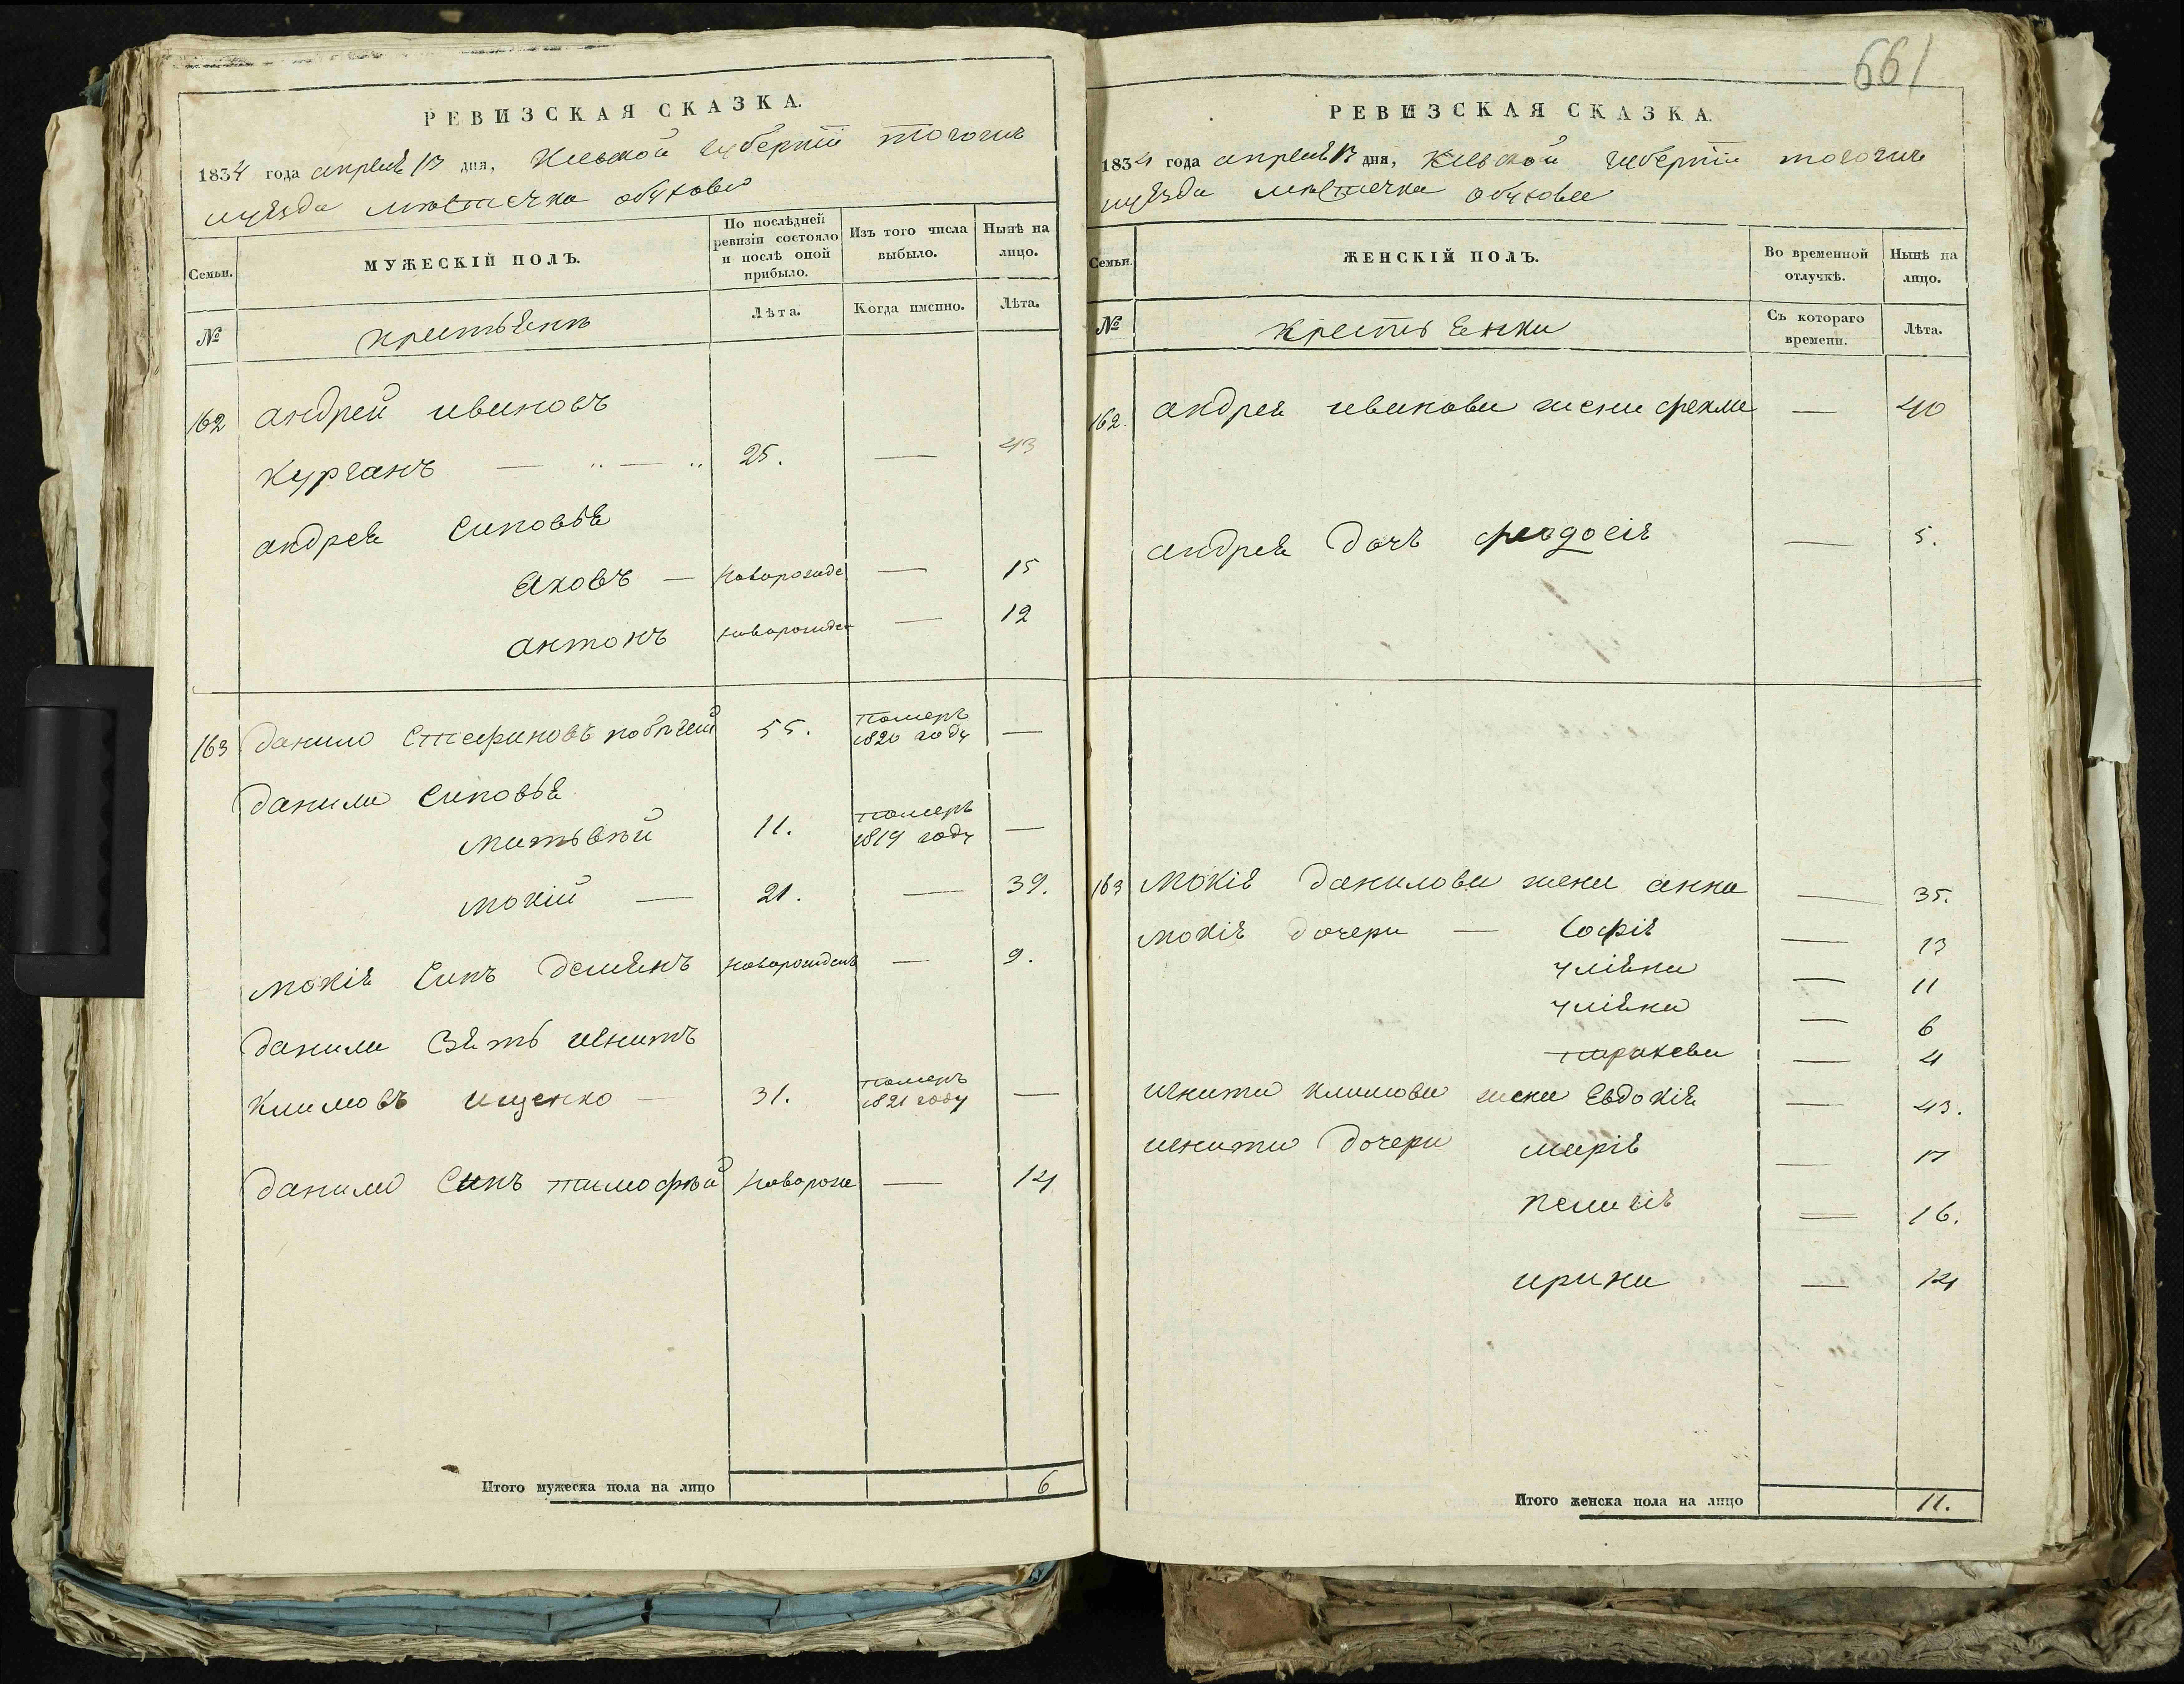 РЕВИЗСКАЯ СКАЗКА.
1834 года апреля 13 дня, Киевской губернии тогожъ
уезда местечка обухова
Семьи.
МУЖЕСКІЙ ПОЛЪ.
По послѣдней ревизіи состояло и послѣ оной прибыло.
Изъ того числа выбыло.
Нынѣ на лицо.
№
крестьянъ
Лѣта.
Когда именно.
Лѣта.
162 андрей ивановъ
курганъ — „ — „ 25. — 43
андрея синовья
яковъ — новорожде — 15
антонъ новорожден — 12
163 данило стефановъ 55. померъ 1820 году —
данила синовья
матьвѣй 11. померъ 1819 году —
мокій — 21. — 39.
мокія синъ демянъ новорожденъ — 9.
данила зять игнатъ
климовъ ищенко — 31. померъ 1821 году —
данила синъ тимофѣй новорож — 14
Итого мужеска пола на лицо 6
661
РЕВИЗСКАЯ СКАЗКА.
1834 года апреля 13 дня, Киевской губернии тогожъ
уезда местечка обухова
Семьи.
ЖЕНСКІЙ ПОЛЪ.
Во временной отлучкѣ.
Нынѣ на лицо.
№
крестьянки
Съ котораго времени.
Лѣта.
162. андрея иванова жена фекла — 40
андрея дочъ феодосія — 5.
163 мокія данилова жена анна — 35.
мокія дочери — софія — 13
уліяна — 11
уліяна — 6
паракева — 4
игната климова жена Евдокія — 43.
игната дочери марія — 17
пелагія — 16.
ирина — 14
Итого женска пола на лицо 11.